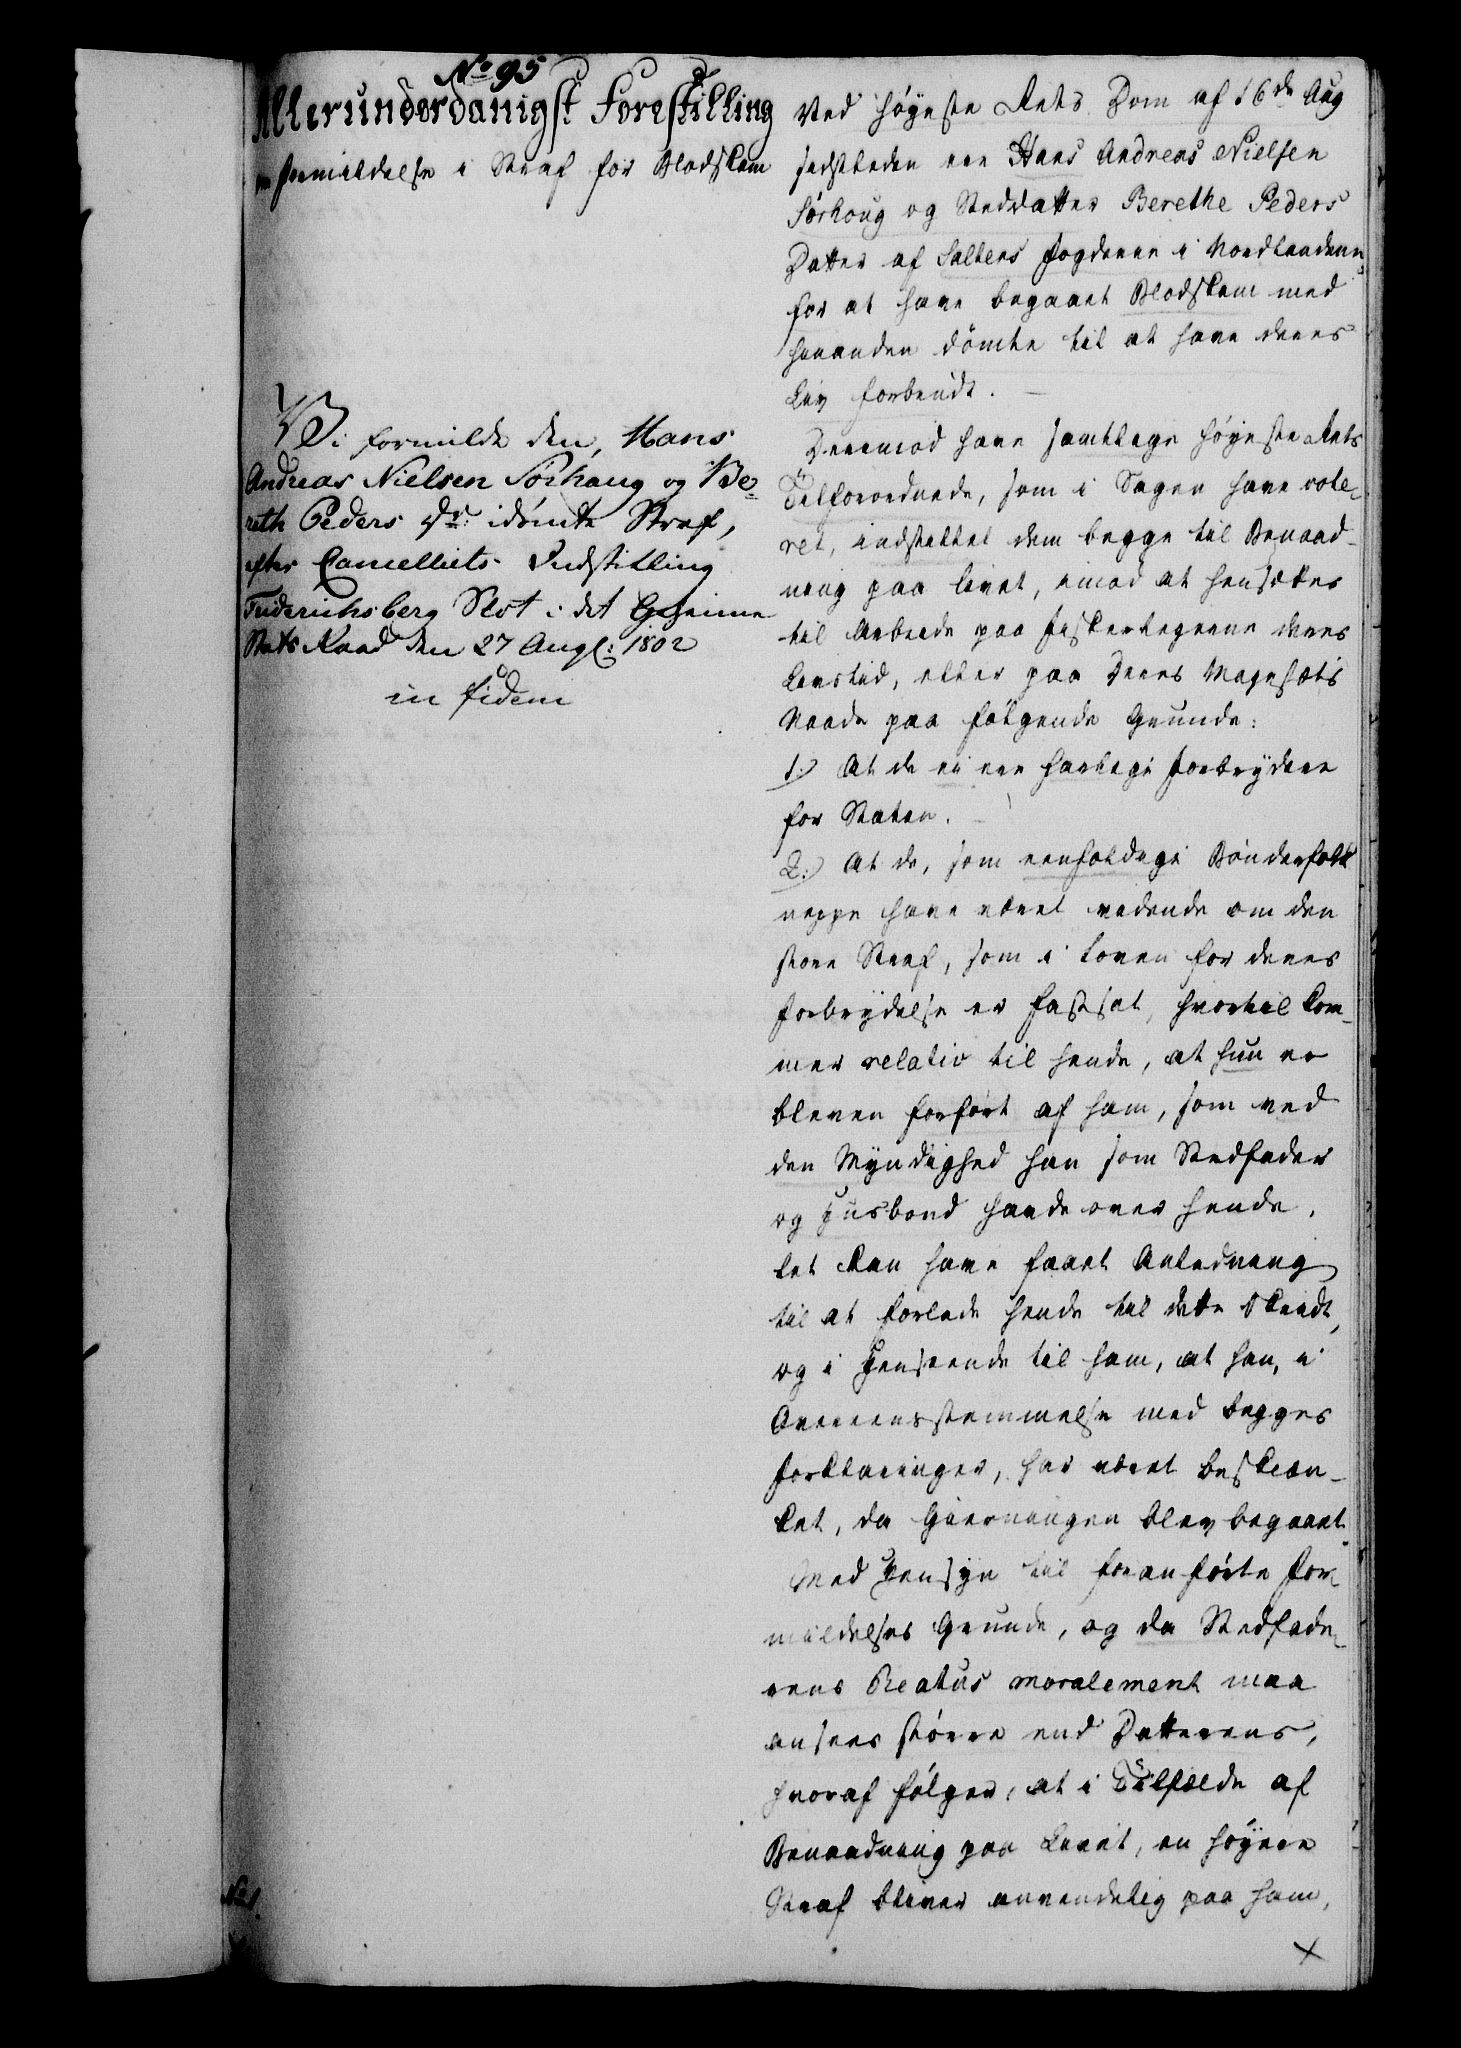 No 95
Allerunderdanigst Forestilling
om Formildelse i Straf for Blodskam
Vi formilde den, Hans
Andreas Nielsen Sörhaug og Be-
reth Peders Dr: idömte Straf,
efter Cancelliets Indstilling
Friderichsberg Slot i det Geheime
Stats Raad den 27 Aug: 1802
in fidem
Ved Høyeste Rets Dom af 16de Aug
sidstleden ere Hans Andreas Nielsen
Sörhoug og Steddatter Berethe Peders
Datter af Saltens Fogderie i Nordlandene
for at have begaaet Blodskam med
hinanden dömte til at have deres
Liv forbrudt.
Derimod have samtlige Høyeste Rets
Tilforordnede, som i Sagen have vote-
ret, indstillet dem begge til Benaad-
ning paa Livet, imod at hensættes
til Arbeide paa Fiskerleyerne deres
Livstid, eller paa Deres Majestæts
Naade paa følgende Grunde:
1.) At de ei ere farlige Forbrydere
for Staten.
2.) At de, som eenfoldige Bönderfolk
neppe have været vidende om den
store Straf, som i Loven for deres
Forbrydelse er fastsat, hvortil kom-
mer relativ til hende, at hun er
bleven forført af ham, som ved
den Myndighed han som Stedfader
og Husbond havde over hende,
let kan have faaet Anledning
til at forlede hende til dette Skridt,
og i Henseende til ham, at han, i
Overeensstemmelse med begges
Forklaringer, har været beskien-
ket, da Gierningen blev begaaet.
Med Hensyn til foranførte For-
mildelses Grunde, og da Stedfade-
rens Reatus moralement maa
ansees større end Datterens,
hvoraf følger, at i Tilfælde af
Benaadning paa Livet, en høyere
Straf bliver anvendelig paa ham,
No 1.